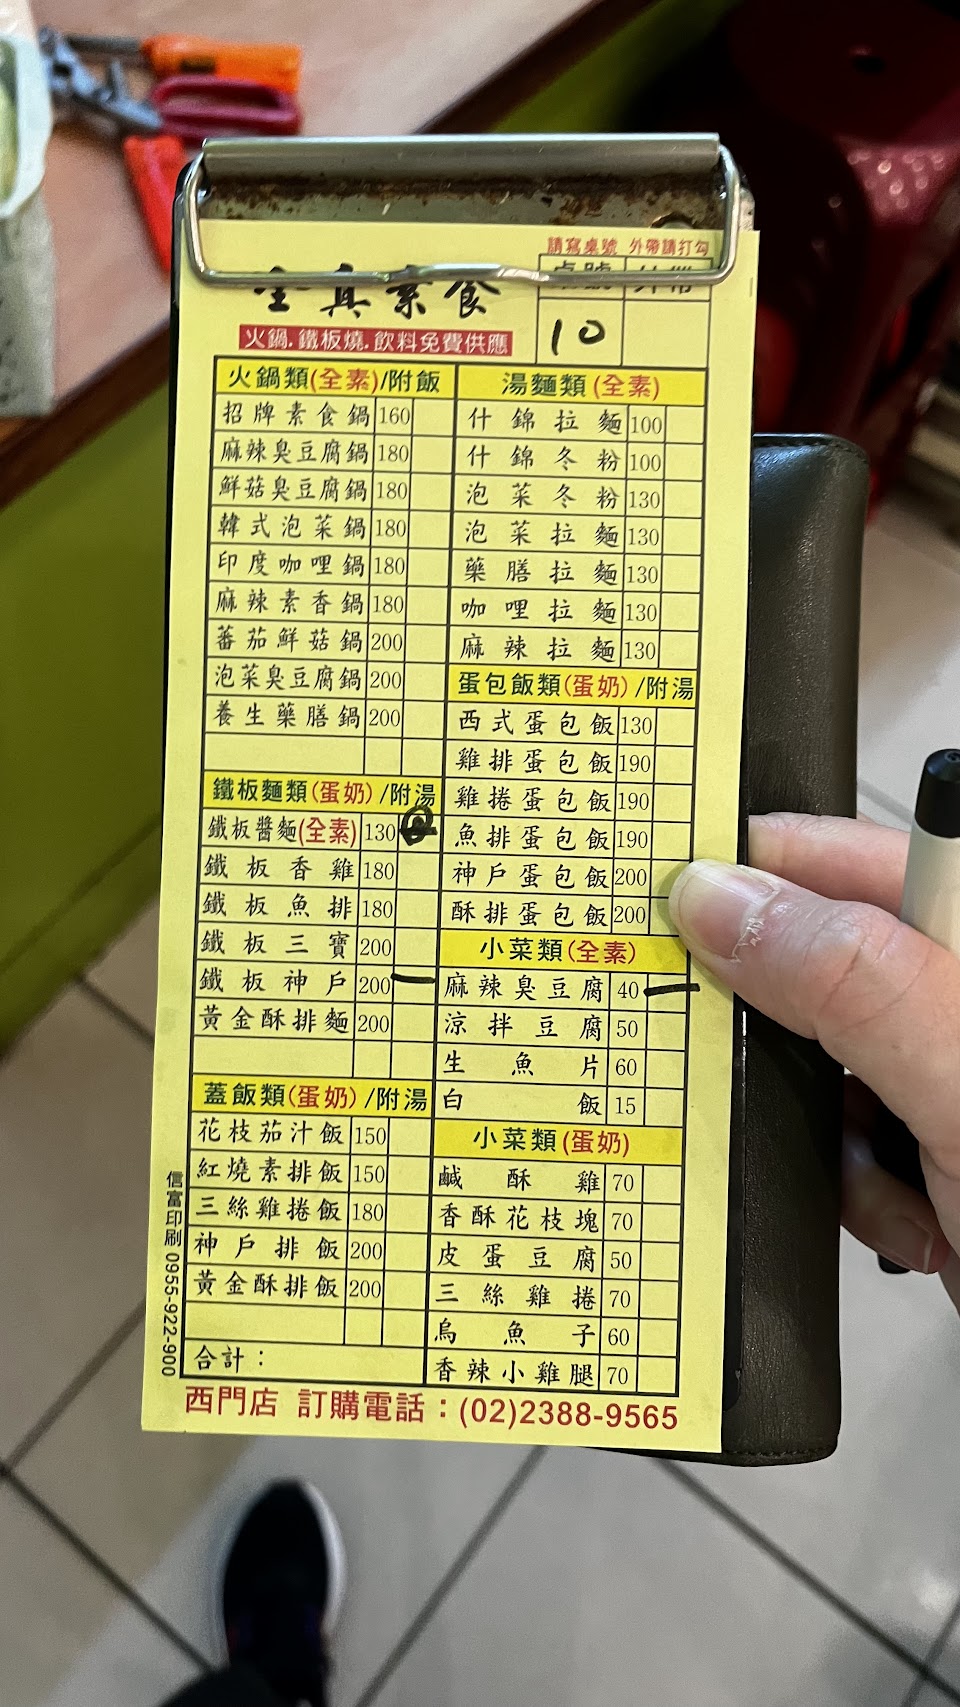 請寫桌號 外帶請打勾
桌號 外帶
全真素食
10
火鍋.鐵板燒.飲料免費供應
火鍋類(全素)/附飯
招牌素食鍋 160
麻辣臭豆腐鍋 180
鮮菇臭豆腐鍋 180
韓式泡菜鍋 180
印度咖哩鍋 180
麻辣素香鍋 180
蕃茄鮮菇鍋 200
泡菜臭豆腐鍋 200
養生藥膳鍋 200
鐵板麵類(蛋奶)/附湯
鐵板醬麵(全素) 130
鐵板香雞 180
鐵板魚排 180
鐵板三寶 200
鐵板神戶 200
黃金酥排麵 200
蓋飯類(蛋奶)/附湯
花枝茄汁飯 150
紅燒素排飯 150
三絲雞捲飯 180
神戶排飯 200
黃金酥排飯 200
合計：
湯麵類(全素)
什錦拉麵 100
什錦冬粉 100
泡菜冬粉 130
泡菜拉麵 130
藥膳拉麵 130
咖哩拉麵 130
麻辣拉麵 130
蛋包飯類(蛋奶)/附湯
西式蛋包飯 130
雞排蛋包飯 190
雞捲蛋包飯 190
魚排蛋包飯 190
神戶蛋包飯 200
酥排蛋包飯 200
小菜類(全素)
麻辣臭豆腐 40
涼拌豆腐 50
生魚片 60
白飯 15
小菜類(蛋奶)
鹹酥雞 70
香酥花枝塊 70
皮蛋豆腐 50
三絲雞捲 70
烏魚子 60
香辣小雞腿 70
西門店 訂購電話：(02)2388-9565
信富印刷 0955-922-900